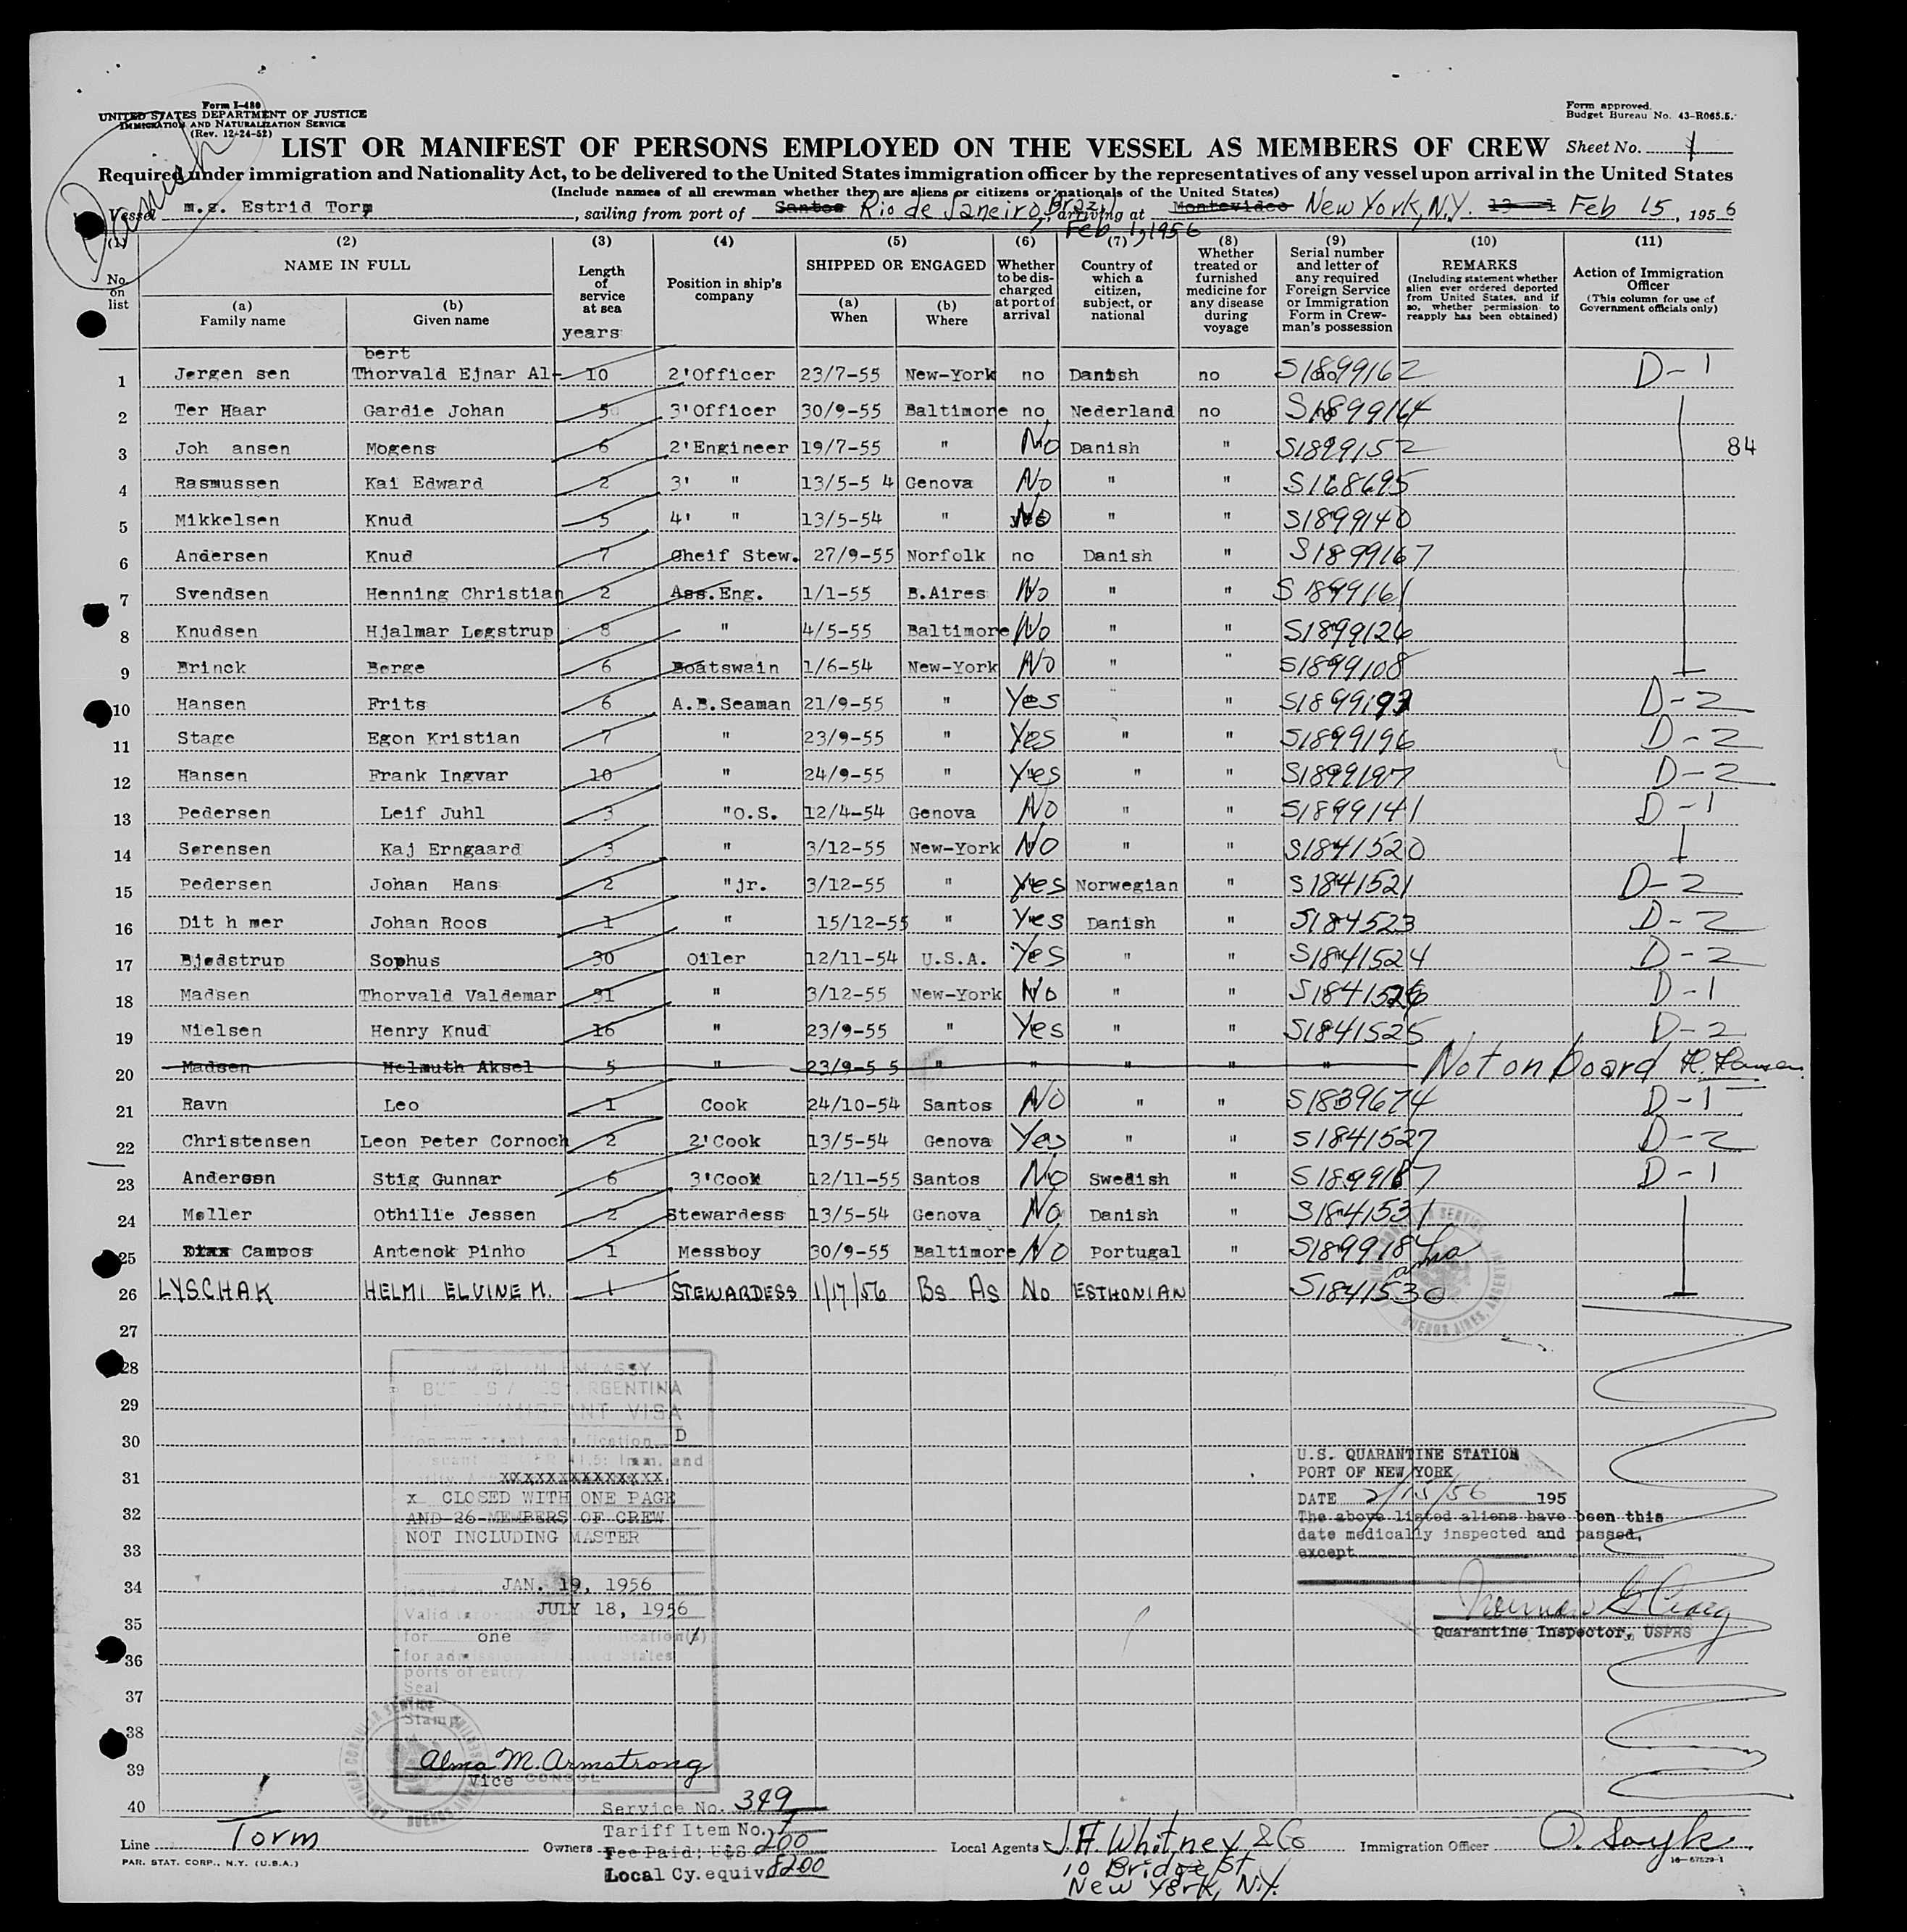 Form I-480
UNITED STATES DEPARTMENT OF JUSTICE
IMMIGRATION AND NATURALIZATION SERVICE
(Rev. 12-24-52)
Danish
Form approved.
Budget Bureau No. 43-R065.5.
LIST OR MANIFEST OF PERSONS EMPLOYED ON THE VESSEL AS MEMBERS OF CREW Sheet No. 1
Required under immigration and Nationality Act, to be delivered to the United States immigration officer by the representatives of any vessel upon arrival in the United States
(Include names of all crewman whether they are aliens or citizens or nationals of the United States)
Vessel m.s. Estrid Torm, sailing from port of Santos Rio de Janeiro, Brazil, arriving at Montevideo New York, N.Y. Feb 15, 1956
Feb 1, 1956
(1) (2) (3) (4) (5) (6) (7) (8) (9) (10) (11)
No. on list
NAME IN FULL
(a) Family name
(b) Given name
Length of service at sea
years
Position in ship's company
SHIPPED OR ENGAGED
(a) When
(b) Where
Whether to be discharged at port of arrival
Country of which a citizen, subject, or national
Whether treated or furnished medicine for any disease during voyage
Serial number and letter of any required Foreign Service or Immigration Form in Crewman's possession
REMARKS
(Including statement whether alien ever ordered deported from United States, and if so, whether permission to reapply has been obtained)
Action of Immigration Officer
(This column for use of Government officials only)
bert
1 Jørgen sen Thorvald Ejnar Al- 10 2'Officer 23/7-55 New-York no Danish no S1899162 D-1
2 Ter Haar Gardie Johan 5 3'Officer 30/9-55 Baltimore no Nederland no S1899164
3 Joh ansen Mogens 6 2'Engineer 19/7-55 " No Danish " S1899152 84
4 Rasmussen Kai Edward 2 3' " 13/5-5 4 Genova No " " S168695
5 Mikkelsen Knud 5 4' " 13/5-54 " No " " S1899140
6 Andersen Knud 7 Cheif Stew. 27/9-55 Norfolk no Danish " S1899167
7 Svendsen Henning Christian 2 Ass.Eng. 1/1-55 B.Aires No " " S1899161
8 Knudsen Hjalmar Løgstrup 8 " 4/5-55 Baltimore No " " S1899126
9 Brinck Børge 6 Boatswain 1/6-54 New-York No " " S1899108
10 Hansen Frits 6 A.B.Seaman 21/9-55 " Yes " " S1899193 D-2
11 Stage Egon Kristian 7 " 23/9-55 " Yes " " S1899196 D-2
12 Hansen Frank Ingvar 10 " 24/9-55 " Yes " " S1899197 D-2
13 Pedersen Leif Juhl 3 "O.S. 12/4-54 Genova No " " S1899141 D-1
14 Sørensen Kaj Erngaard 3 " 3/12-55 New-York No " " S1841520
15 Pedersen Johan Hans 2 "jr. 3/12-55 " Yes Norwegian " S1841521 D-2
16 Dit h mer Johan Roos 1 " 15/12-55 " Yes Danish " S184523 D-2
17 Bjødstrup Sophus 30 Oiler 12/11-54 U.S.A. Yes " " S1841524 D-2
18 Madsen Thorvald Valdemar 31 " 3/12-55 New-York No " " S1841526 D-1
19 Nielsen Henry Knud 16 " 23/9-55 " Yes " " S1841525 D-2
20 Madsen Helmuth Aksel 5 " 23/9-5 5 " " " " " Not on board
21 Ravn Leo 1 Cook 24/10-54 Santos No " " S1839674 D-1
22 Christensen Leon Peter Cornoch 2 2'Cook 13/5-54 Genova Yes " " S1841527 D-2
23 Anderson Stig Gunnar 6 3'Cook 12/11-55 Santos No Swedish " S1899187 D-1
24 Møller Othilie Jessen 2 Stewardess 13/5-54 Genova No Danish " S1841531
25 Campos Antenok Pinho 1 Messboy 30/9-55 Baltimore No Portugal " S1899184
26 LYSCHAK HELMI ELVINE M. 1 STEWARDESS 1/17/56 Bs As No ESTHONIAN S1841530
27
28
29
30
31
32
33
34
35
36
37
38
39
40
AMERICAN EMBASSY
BUENOS AIRES, ARGENTINA
NONIMMIGRANT VISA
D
xxxxxxxxxxxxxx
x CLOSED WITH ONE PAGE
AND 26 MEMBERS OF CREW
NOT INCLUDING MASTER
JAN. 19, 1956
Valid through JULY 18, 1956
for one application(s)
for admission at United States
ports of entry.
Seal
Stamp
Alma M. Armstrong
Vice CONSUL
U.S. QUARANTINE STATION
PORT OF NEW YORK
DATE 2/15/56 195
The above listed aliens have been this
date medically inspected and passed,
except
Quarantine Inspector, USPHS
Service No. 349
Tariff Item No. 7
Fee Paid: U$S 200
Local Cy. equiv. 8200
Line Torm Owners Local Agents J.H. Whitney & Co Immigration Officer
10 Bridge St
New York, N.Y.
PAR. STAT. CORP., N.Y. (U.S.A.)
16-67529-1